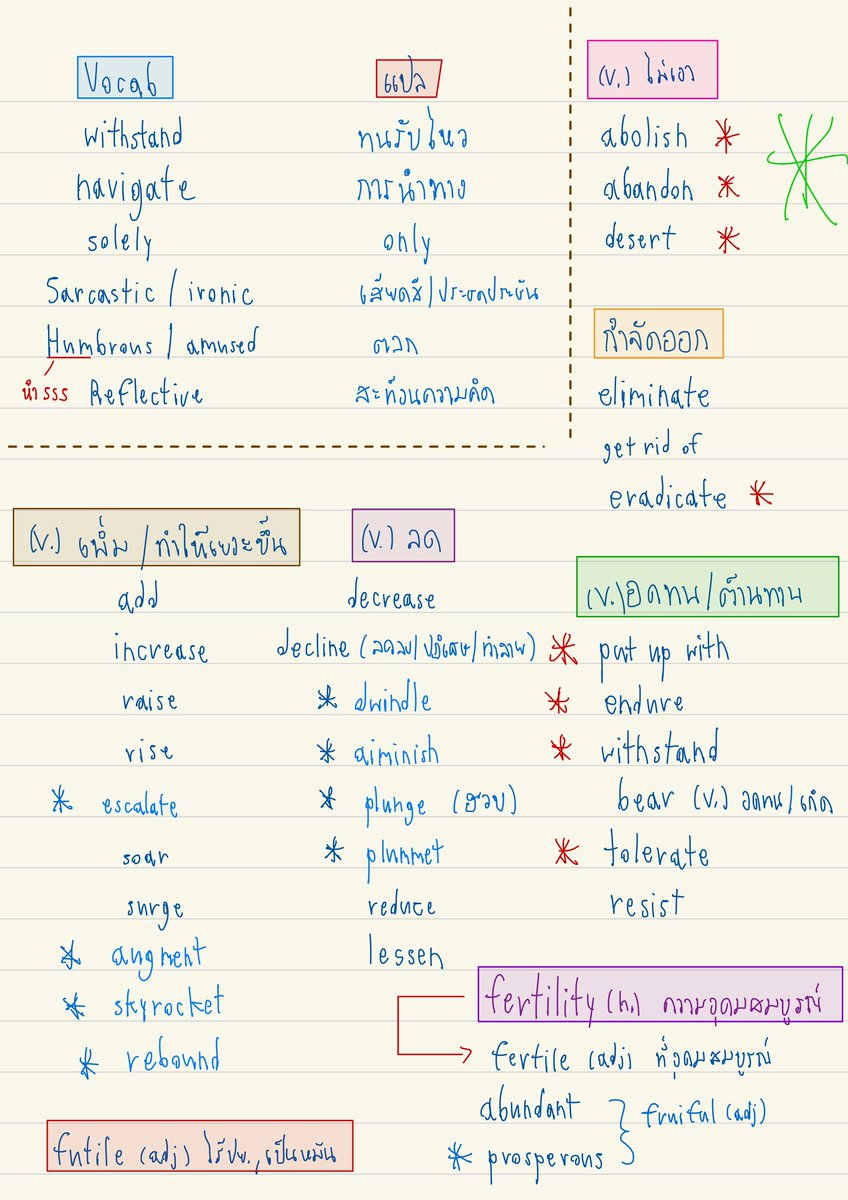 Vocab แปล
withstand ทนรับไหว
navigate การนำทาง
solely only
Sarcastic / ironic เสียดสี/ประชดประชัน
Humbrous / amused ตลก
นำรรร Reflective สะท้อนความคิด
(v.) ไม่เอา
abolish *
abandon *
desert *
กำจัดออก
eliminate
get rid of
eradicate *
(v.) เพิ่ม / ทำให้เยอะขึ้น
add
increase
raise
rise
* escalate
soar
surge
* augment
* skyrocket
* rebound
(v.) ลด
decrease
decline (ลดลง/ปฏิเสธ/ทำลาย)
* dwindle
* diminish
* plunge (ฮวบ)
* plummet
reduce
lessen
(v.) อดทน/ต้านทาน
* put up with
* endure
* withstand
bear (v.) อดทน/เกิด
* tolerate
resist
fertility (n.) ความอุดมสมบูรณ์
fertile (adj) ที่อุดมสมบูรณ์
abundant
* prosperous
fruiful (adj)
futile (adj) ไร้ปย., เป็นหมัน